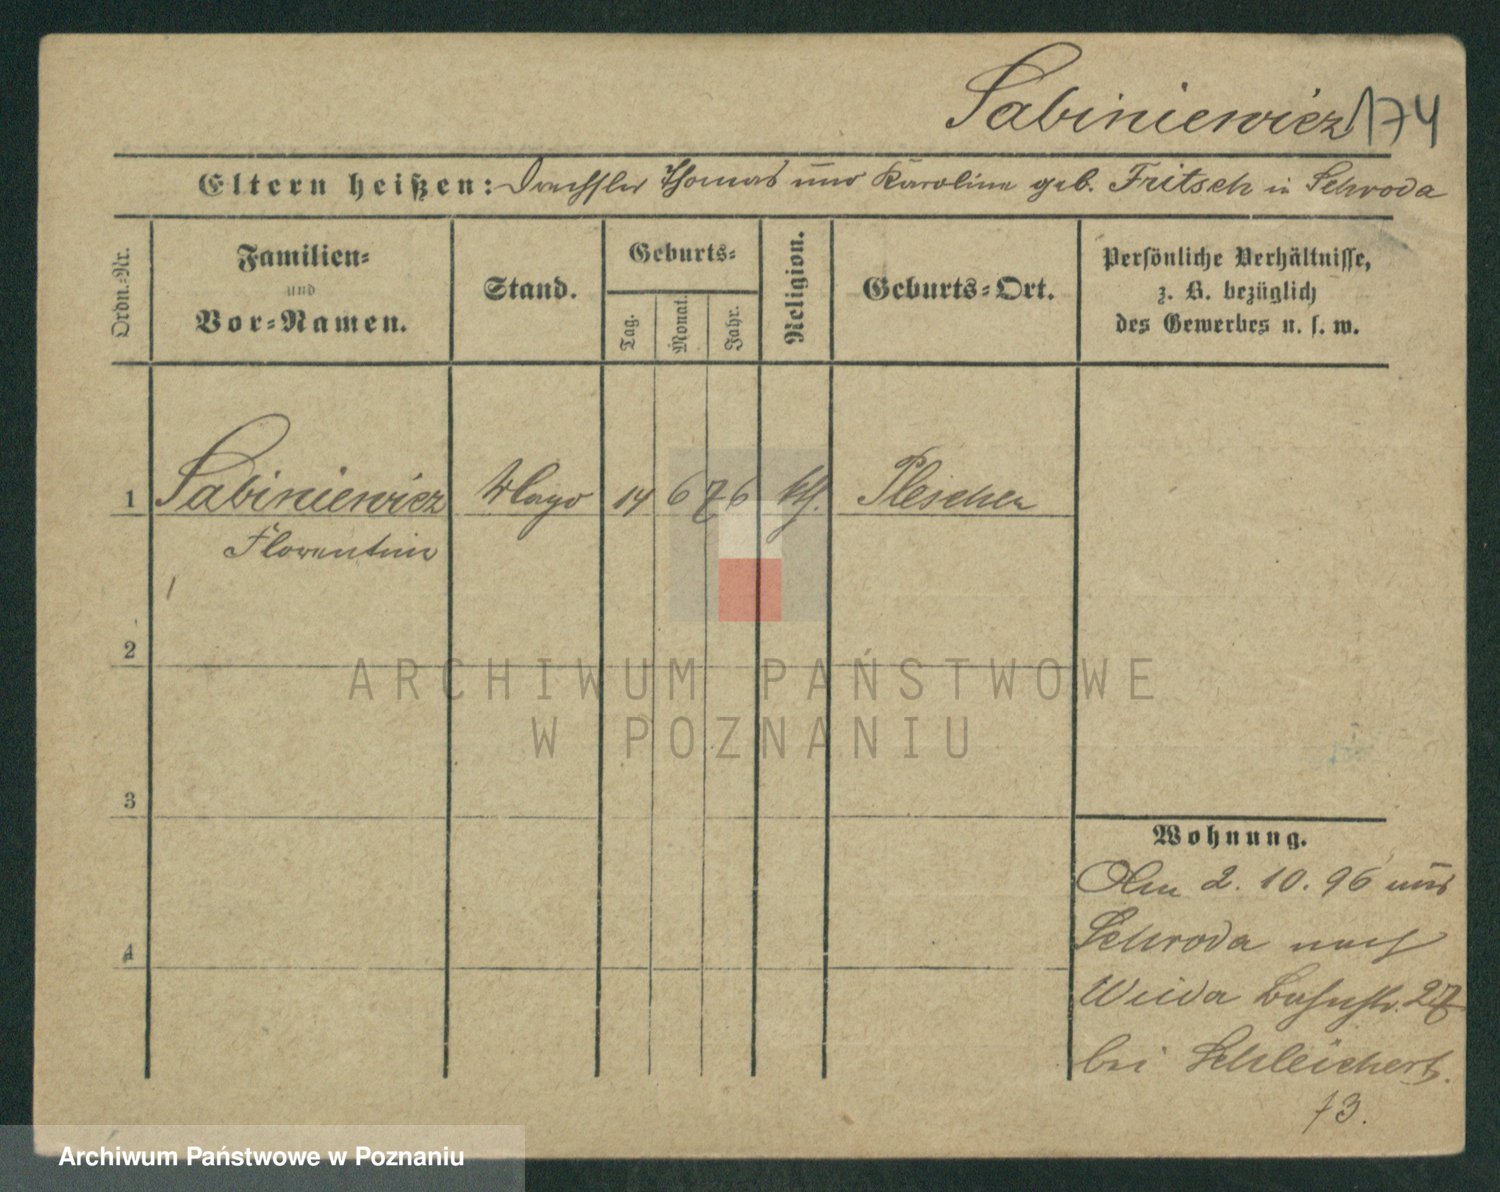 Sabiniewicz 174
Eltern heißen: Thomas und Karoline geb. Fritsch in Schroda
Ordn.-Nr.
Familien-
und
Vor-Namen.
Stand.
Geburts-
Tag.
Monat.
Jahr.
Religion.
Geburts-Ort.
Persönliche Verhältnisse,
z. B. bezüglich
des Gewerbes u. s. w.
1 Sabiniewicz 14 6 76 kth. Pleschen
Florentine
2
3
4
Wohnung.
Am 2. 10. 96 aus
Schroda nach
Wilda Bahnstr. 27
bei Schleichert.
73.
ARCHIWUM PAŃSTWOWE
W POZNANIU
Archiwum Państwowe w Poznaniu